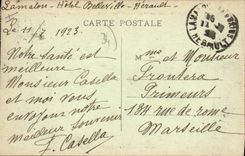 Lamalou - Hôtel Belleville - Hérault -
CARTE POSTALE
Le 11 1923.
Notre santé est
meilleure
Monsieur Casella
et moi vous
envoyons notre
meilleur souvenir
F. Casella
Mme et Monsieur
Frontera
Primeurs
184 rue de Rome
Marseille